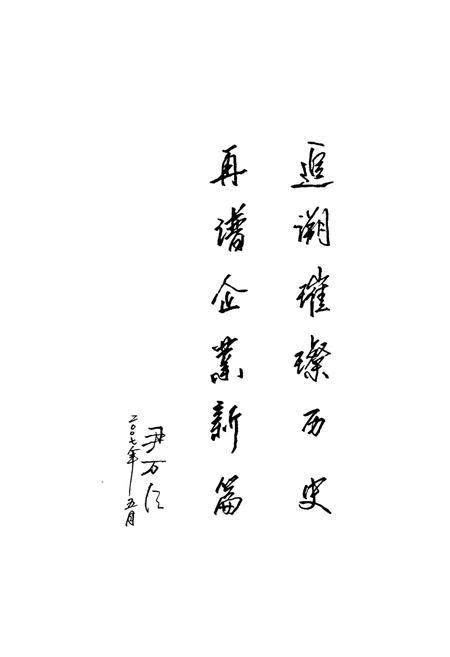 追溯璀璨历史
再谱企業新篇
尹万
二〇〇七年五月